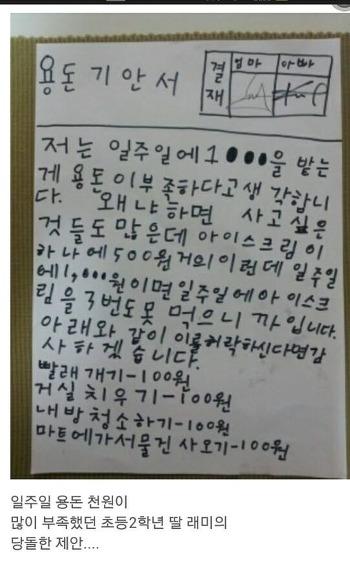 용돈기안서
결재 엄마 아빠
저는 일주일에 1000을 받는
게 용돈이 부족하다고 생각합니
다. 왜냐하면 사고 싶은
것들도 많은데 아이스크림이
하나에 500원 거의 이런데 일주일
에 1,000원이면 일주일에 아이스크
림을 3번도 못 먹으니까입니다.
아래와 같이 이를 허락하신다면 감
사하겠습니다.
빨래개기-100원
거실치우기-100원
내방청소하기-100원
마트에가서물건 사오기-100원
일주일 용돈 천원이
많이 부족했던 초등2학년 딸 래미의
당돌한 제안....